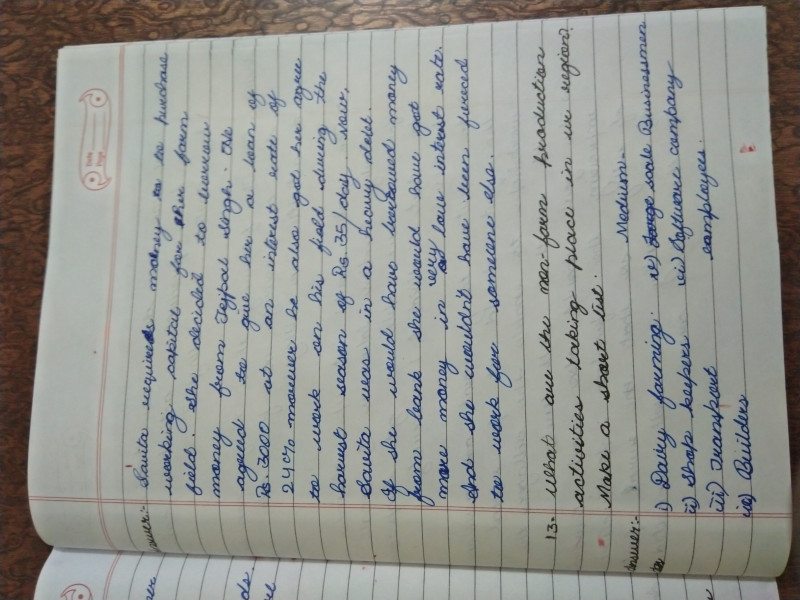 Date
Page
Answer:- Savita requires money to to purchase
working capital for her farm
field. She decided to borrow
money from Tejpal Singh. He
agreed to give her a loan of
Rs. 3000 at an interest rate of
24% moreover he also got her agree
to work on his field during the
harvest season of Rs 35/day. now,
Savita was in a heavy debt.
If she would have borrowed money
from bank she would have got
more money in very low interest rate.
And she wouldn't have been forced
to work for someone else.
13- What are the non-farm production
activities taking place in ur region?
Make a short list.
Answer:-
i) Dairy farming. v) Medium scale Businessmen
ii) Shop keepers vi) Software company
iii) Transport employees.
iv) Builders